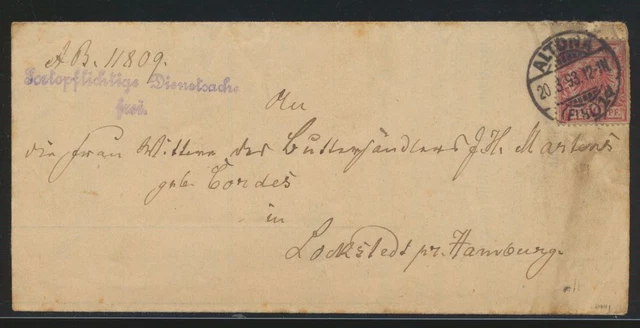 A.B. 11809.
Portopflichtige Dienstsache
frei.
An
die Frau Wittwe des Butterhändlers J. H. Martens
geb. Cordes
in
Lockstedt pr. Hamburg.
ALTONA
20.3.93.12-1N.
(ELBE)